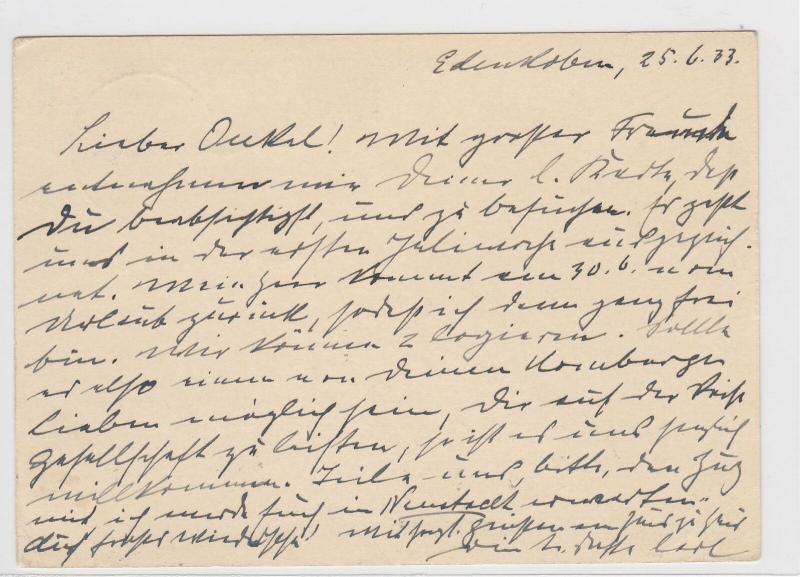 Edenkoben, 25.6.33.
Lieber Onkel! Mit großer Freude
entnehmen wir Deiner l. Karte, daß
Du beabsichtigst, uns zu besuchen. Es paßt
uns in der ersten Juliwoche ausgezeich-
net. Mein Herr kommt am 30.6. vom
Urlaub zurück, sodaß ich dann ganz frei
bin. Wir können 2 logieren. Sollte
es also einem von Deinen Hornberger
Lieben möglich sein, Dir auf der Reise
Gesellschaft zu leisten, so ist es uns herzlich
willkommen. Teile uns, bitte, den Zug
mit, ich werde Euch in Neustadt erwarten.
Auf frohes Wiedersehn! Mit herzl. Grüßen von Haus zu Haus
Dein Carl